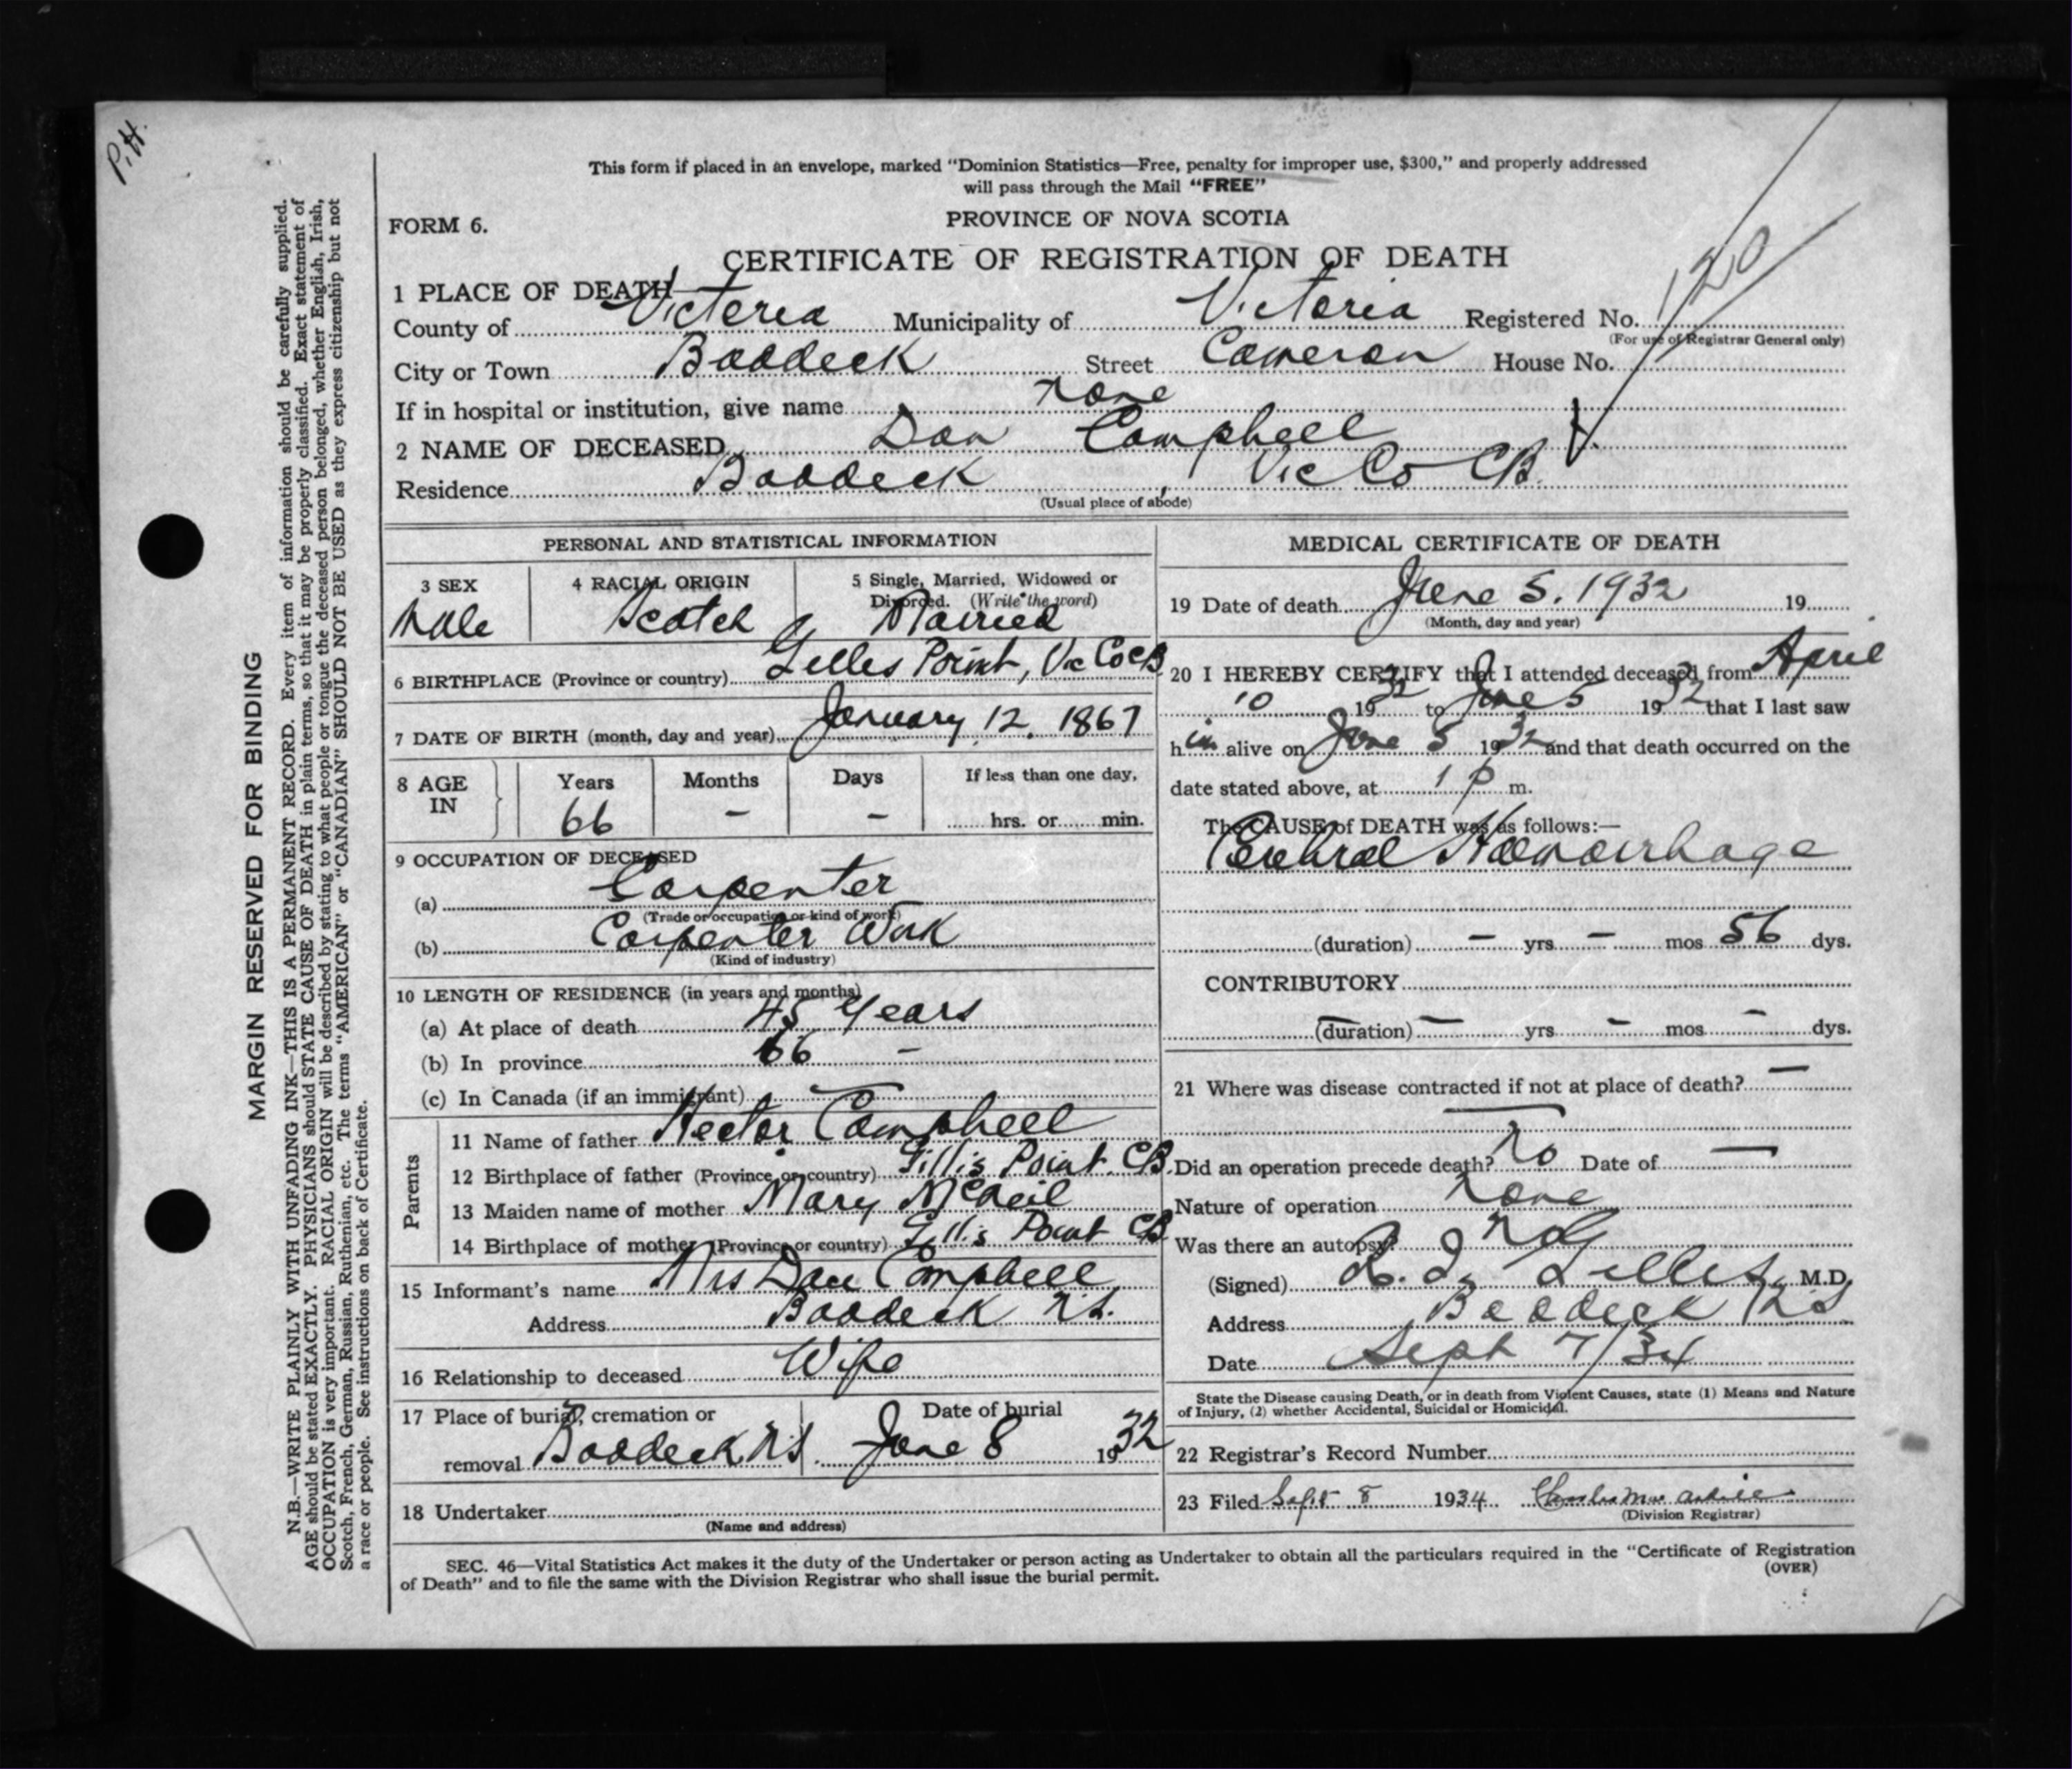 P.H.
This form if placed in an envelope, marked "Dominion Statistics—Free, penalty for improper use, $300," and properly addressed
will pass through the Mail "FREE"
FORM 6.
PROVINCE OF NOVA SCOTIA
CERTIFICATE OF REGISTRATION OF DEATH
1 PLACE OF DEATH
County of Victoria Municipality of Victoria Registered No. 120
(For use of Registrar General only)
City or Town Baddeck Street Cameron House No.
If in hospital or institution, give name none
2 NAME OF DECEASED Dan Campbell
Residence Baddeck Vic Co CB.
(Usual place of abode)
PERSONAL AND STATISTICAL INFORMATION
3 SEX Male
4 RACIAL ORIGIN Scotch
5 Single, Married, Widowed or
Divorced. (Write the word)
Married
6 BIRTHPLACE (Province or country) Gilles Point, Vic Co CB
7 DATE OF BIRTH (month, day and year) January 12. 1867
8 AGE IN Years Months Days If less than one day,
66 - - hrs. or min.
9 OCCUPATION OF DECEASED
(a) Carpenter
(Trade or occupation or kind of work)
(b) Carpenter Work
(Kind of industry)
10 LENGTH OF RESIDENCE (in years and months)
(a) At place of death 45 Years
(b) In province 66 -
(c) In Canada (if an immigrant) —
Parents
11 Name of father Hector Campbell
12 Birthplace of father (Province or country) Gillis Point. CB.
13 Maiden name of mother Mary McNeil
14 Birthplace of mother (Province or country) Gillis Point CB
15 Informant's name Mrs Dan Campbell
Address Baddeck N.S.
16 Relationship to deceased Wife
17 Place of burial, cremation or Date of burial
removal Baddeck N.S. June 8 1932
18 Undertaker
(Name and address)
MEDICAL CERTIFICATE OF DEATH
19 Date of death June 5. 1932 19
(Month, day and year)
20 I HEREBY CERTIFY that I attended deceased from April
10 1932 to June 5 1932 that I last saw
him alive on June 5 1932 and that death occurred on the
date stated above, at 1 p m.
The CAUSE of DEATH was as follows:—
Cerebral Haemorrhage
(duration) - yrs - mos 56 dys.
CONTRIBUTORY
(duration) - yrs - mos - dys.
21 Where was disease contracted if not at place of death? —
—
Did an operation precede death? No Date of —
Nature of operation none
Was there an autopsy? no
(Signed) Gillis M.D.
Address Baddeck NS
Date Sept 7/34
State the Disease causing Death, or in death from Violent Causes, state (1) Means and Nature
of Injury, (2) whether Accidental, Suicidal or Homicidal.
22 Registrar's Record Number
23 Filed Sept 8 1934 Charles
(Division Registrar)
SEC. 46—Vital Statistics Act makes it the duty of the Undertaker or person acting as Undertaker to obtain all the particulars required in the "Certificate of Registration
of Death" and to file the same with the Division Registrar who shall issue the burial permit.
(OVER)
MARGIN RESERVED FOR BINDING
N.B.—WRITE PLAINLY WITH UNFADING INK—THIS IS A PERMANENT RECORD. Every item of information should be carefully supplied.
AGE should be stated EXACTLY. PHYSICIANS should STATE CAUSE OF DEATH in plain terms, so that it may be properly classified. Exact statement of
OCCUPATION is very important. RACIAL ORIGIN will be described by stating to what people or tongue the deceased person belonged, whether English, Irish,
Scotch, French, German, Russian, Ruthenian, etc. The terms "AMERICAN" or "CANADIAN" SHOULD NOT BE USED as they express citizenship but not
a race or people. See instructions on back of Certificate.